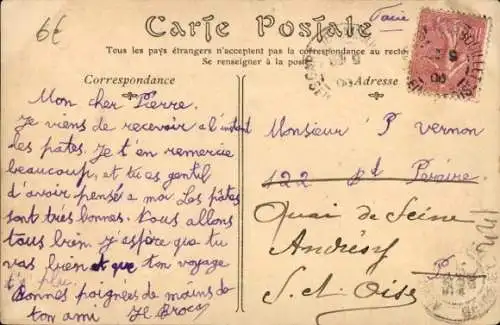 6€
Carte Postale
Tous les pays étrangers n'acceptent pas la correspondance au recto
Se renseigner à la poste
Correspondance
Adresse
Mon cher Pierre.
Je viens de recevoir a l'instant
les pâtes. Je t'en remercie
beaucoup, et tu es gentil
d'avoir pensé a moi. Les pâtes
sont très bonnes. Nous allons
tous bien. J'espère que tu
vas bien et que ton voyage
t'a plu.
Bonnes poignées de mains de
ton ami
Monsieur P Vernon
122 Bd Pereire
Quai de Seine
Andrésy
S. et Oise